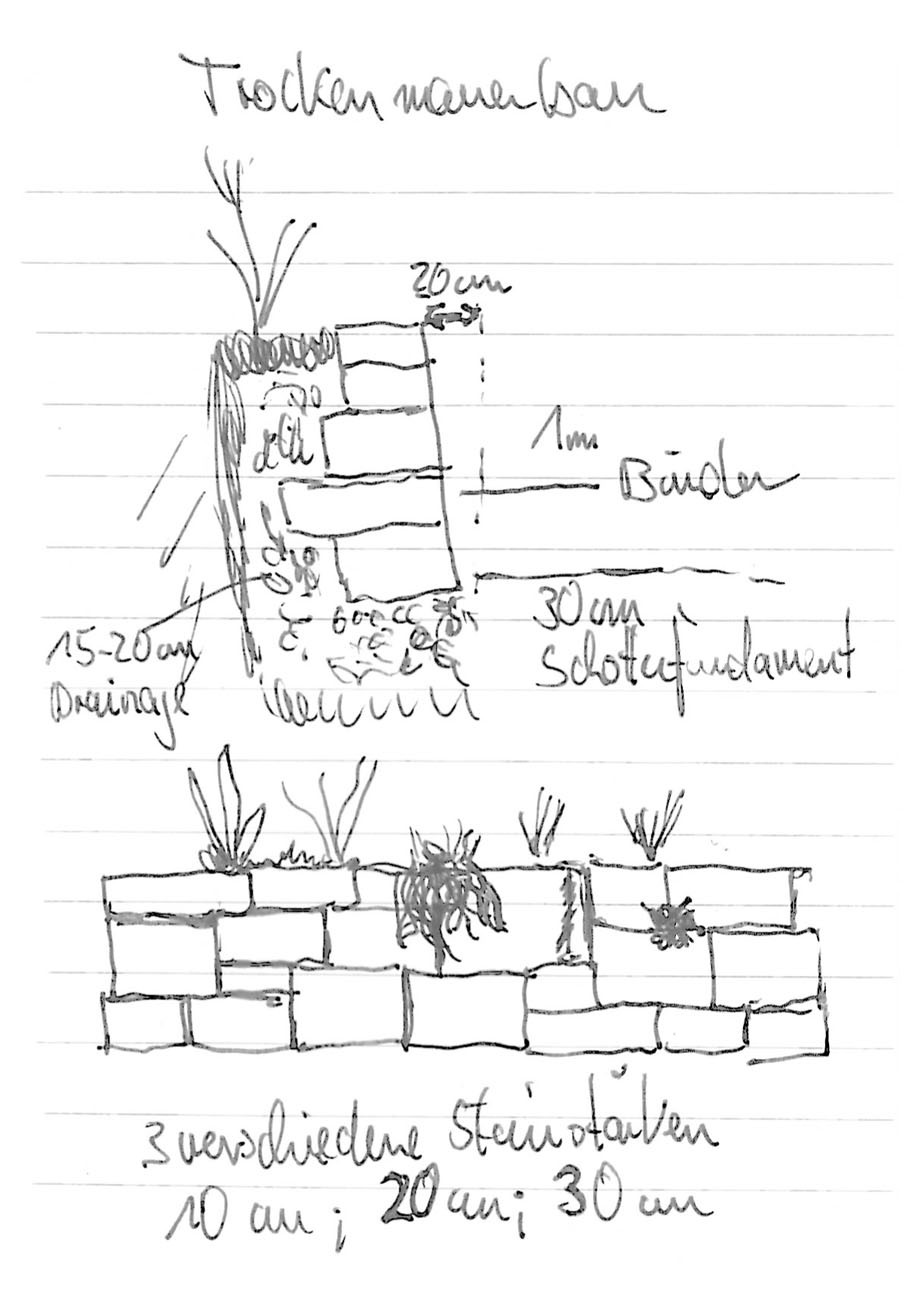 Trockenmauerbau
20 cm
1m
Binder
30 cm
Schotterfundament
15-20 cm
Drainage
3 verschiedene Steinstärken
10 cm; 20 cm; 30 cm